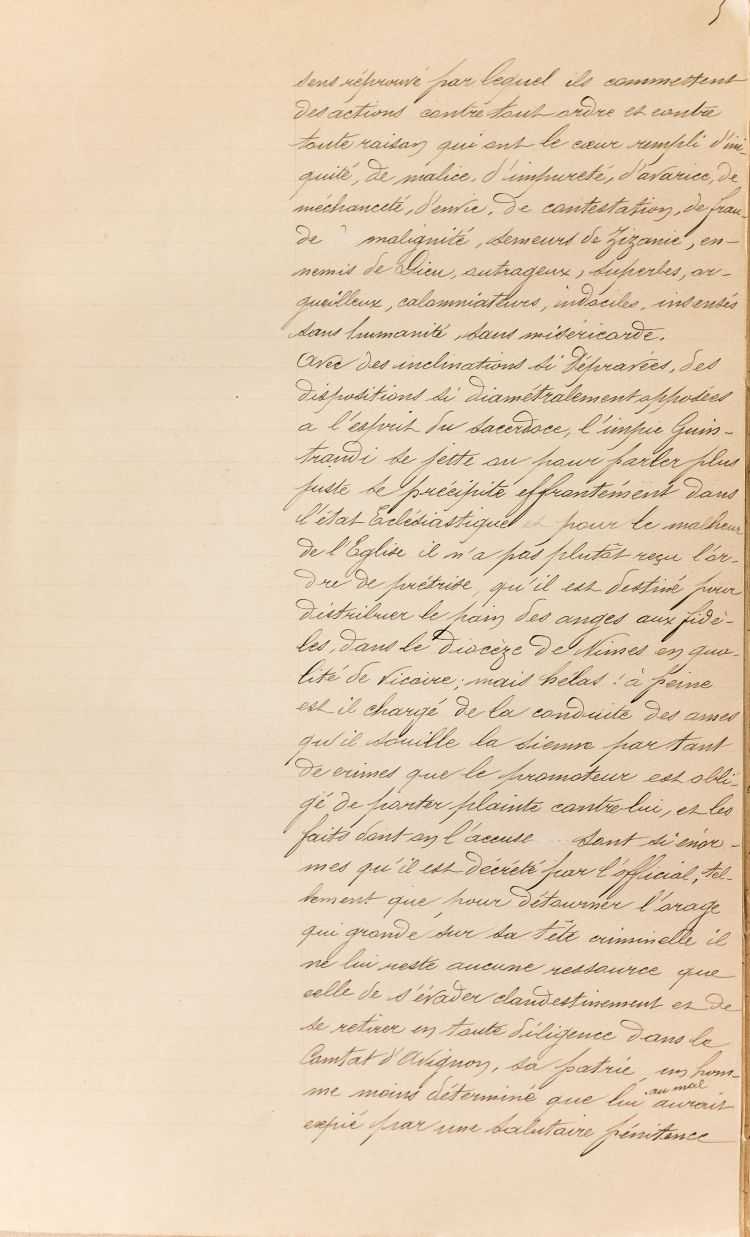 5
sens réprouvé par lequel ils commettent
des actions contre tout ordre et contre
toute raison qui ont le cœur rempli d'ini-
quité, de malice, d'impureté, d'avarice, de
méchanceté, d'envie, de contestation, de frau-
de malignité, semeurs de zizanie, en-
nemis de Dieu, outrageux, superbes, or-
gueilleux, calomniateurs, indociles, insensés
sans humanité, sans miséricorde.
Avec des inclinations si dépravées, des
dispositions si diamétralement opposées
a l'esprit du sacerdoce, l'impie Guin-
trandi se jette ou pour parler plus
juste se précipite effrontément dans
l'état Eclésiastique et pour le malheur
de l'Eglise il n'a pas plutôt reçu l'or-
dre de prêtrise, qu'il est destiné pour
distribuer le pain des anges aux fidè-
les, dans le diocèze de Nimes en qua-
lité de Vicaire; mais helas! à peine
est il chargé de la conduite des ames
qu'il souille la sienne par tant
de crimes que le promoteur est obli-
gé de porter plainte contre lui, et les
faits dont on l'accuse sont si énor-
mes qu'il est décrété par l'official, tel-
lement que pour détourner l'orage
qui gronde sur sa tête criminelle il
ne lui reste aucune ressource que
celle de s'évader clandestinement et de
se retirer en toute diligence dans le
Comtat d'Avignon, sa patrie, un hom-
me moins déterminé que lui au mal aurait
expié par une salutaire pénitence